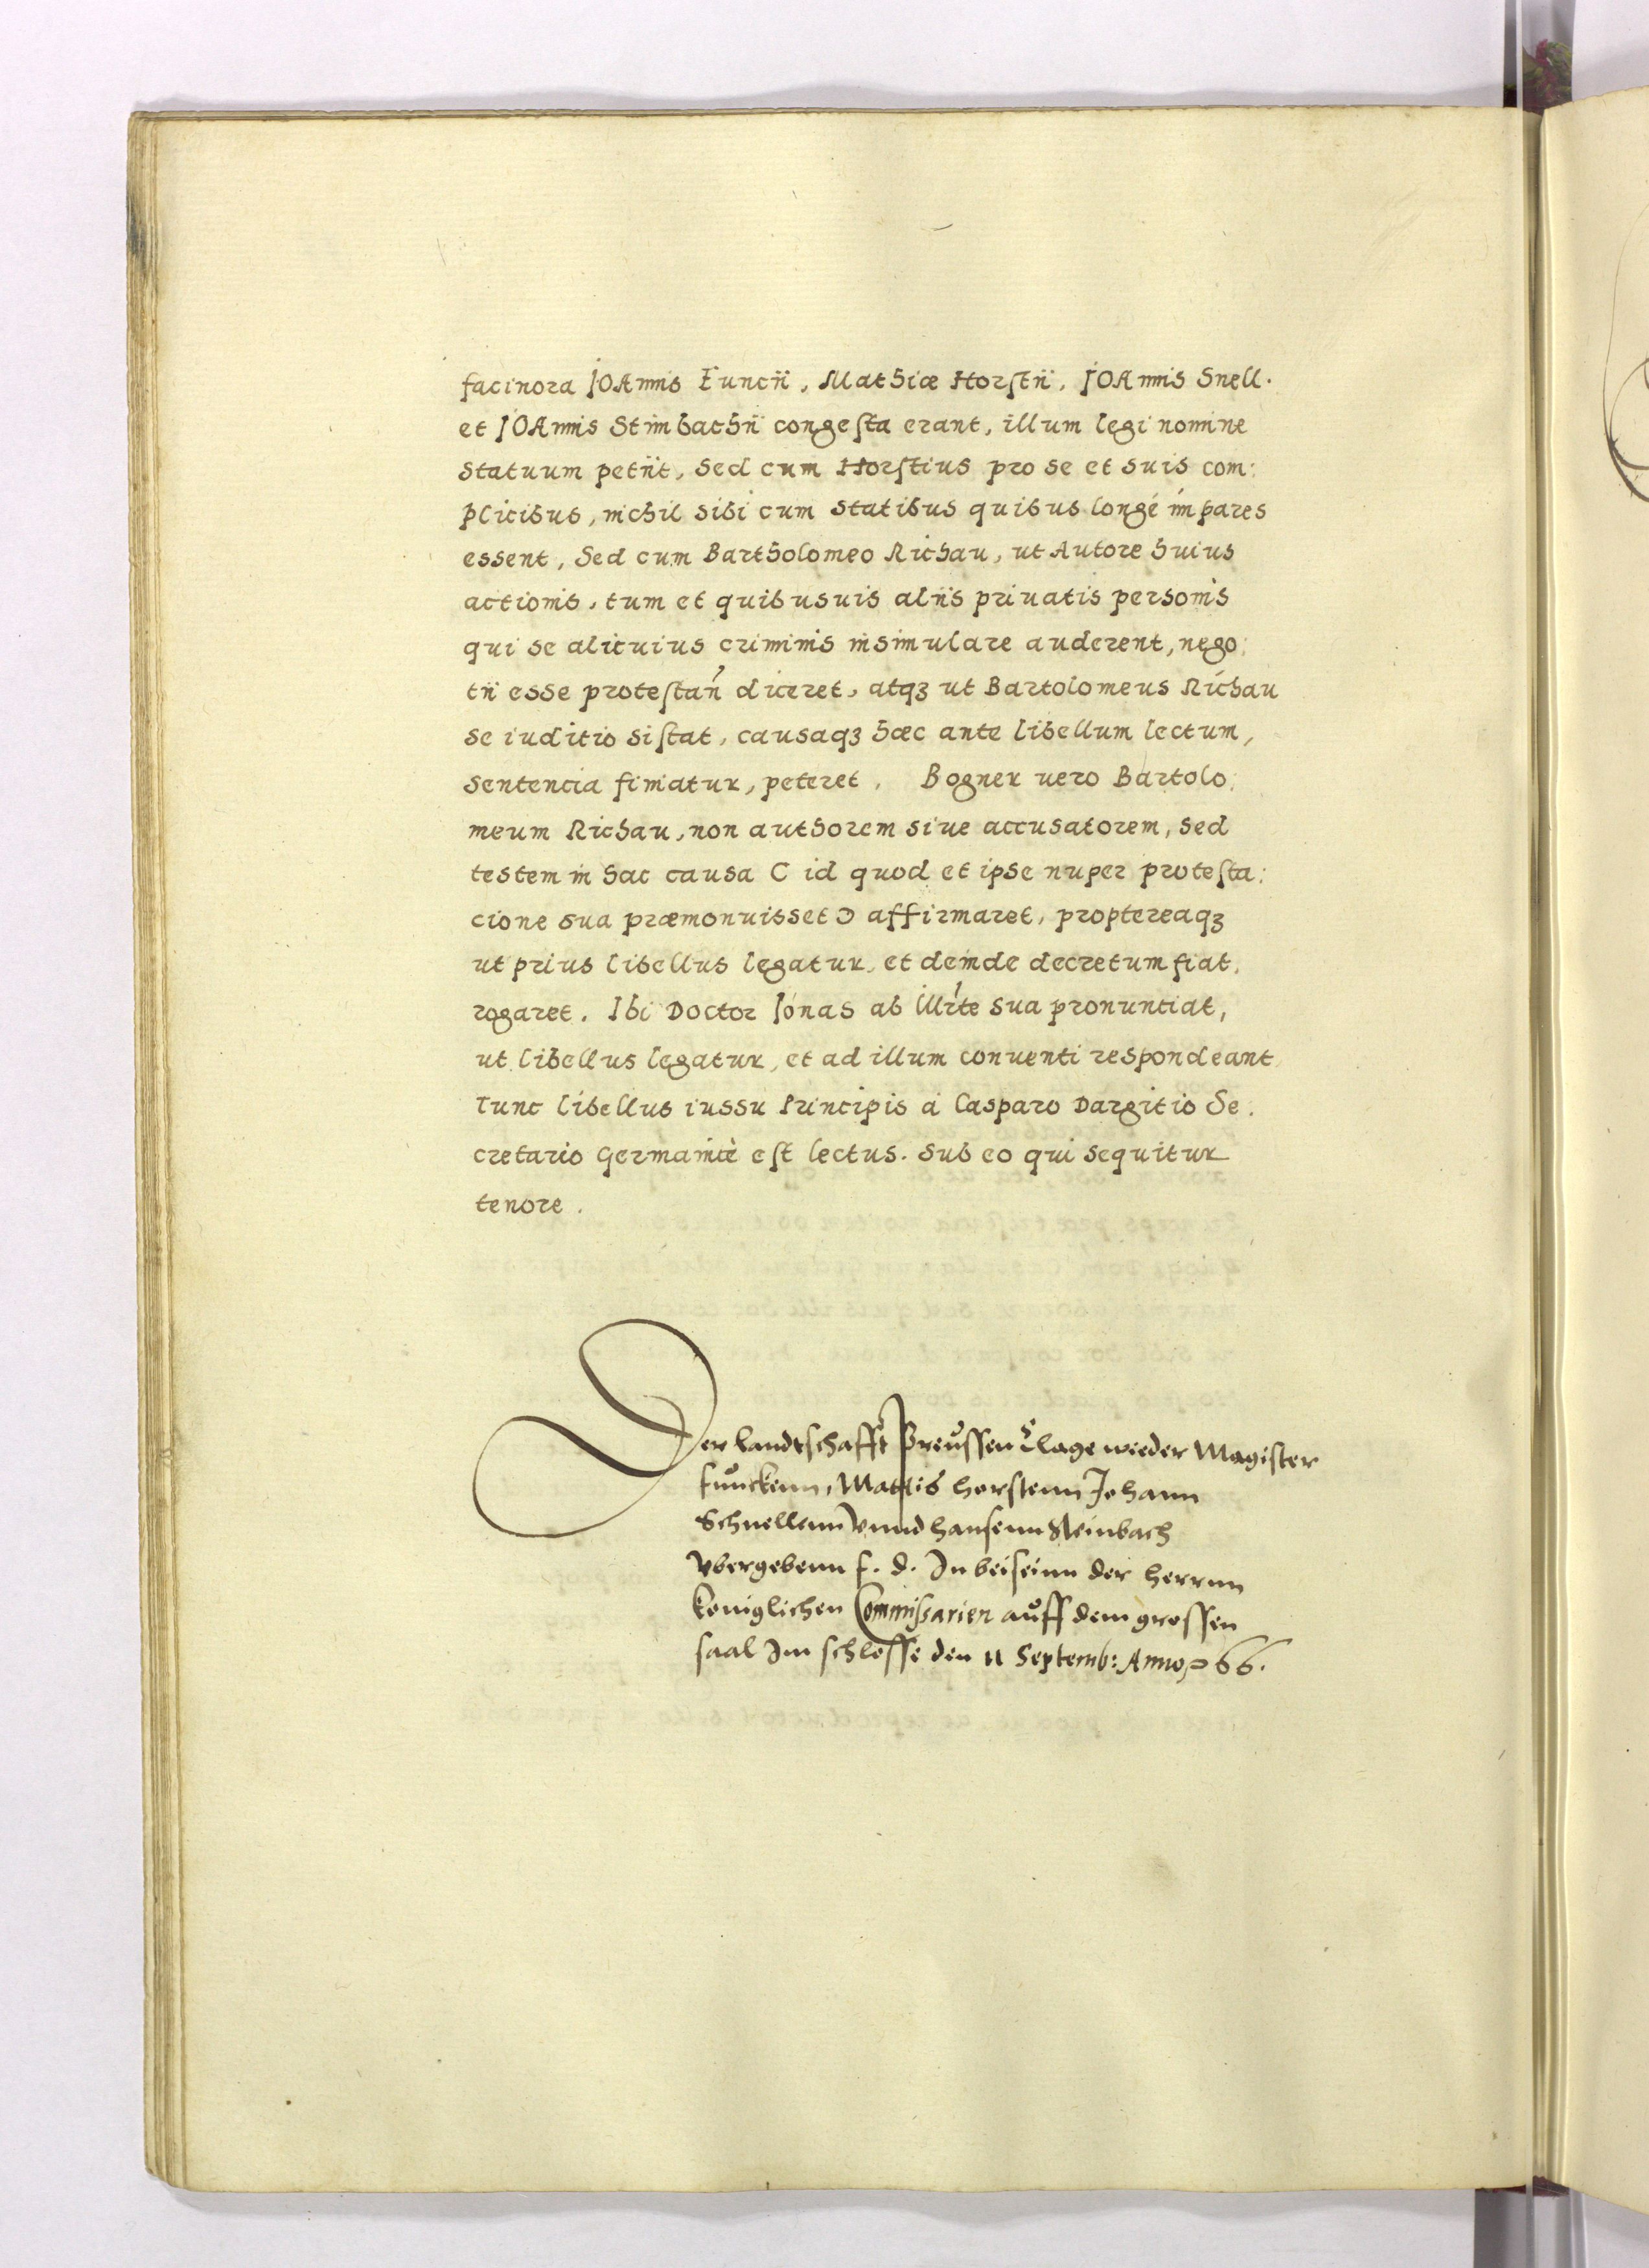 facinora JOAnnis Funcii, Mathiæ Horstii, JOAnnis Snell.
et JOAnnis Stinbachii congesta erant, illum legi nomine
statuum petiit, sed cum Horstius pro se et suis com:
plicibus, nichil sibi cum statibus quibus longé impares
essent, Sed cum Bartholomeo Richau, ut Autore huius
actionis, tum et quibusuis aliis priuatis personis
qui se alicuius criminis insimulare auderent, nego:
tii esse protestan̄ diceret, atqꝫ ut Bartolomeus Richau
se iuditio sistat, causaqꝫ hæc ante libellum lectum,
sentencia finiatur, peteret. Bogner uero Bartolo:
meum Richau, non authorem siue accusatorem, sed
testem in hac causa C id quod et ipse nuper protesta:
cione sua præmonuisset Ɔ affirmaret, proptereaqꝫ
ut prius libellus legatur, et deinde decretum fiat,
rogaret. Ibi Doctor Jonas ab Illrte sua pronuntiat,
ut libellus legatur, et ad illum conuenti respondeant
Tunc libellus iussu Principis a Casparo Dargitio Se:
cretario Germanicè est lectus. Sub eo qui sequitur
tenore.
Der landtschafft Preussen Clage wieder Magister
funckenn, Mattis horstenn Johann
Schnellenn Vnnd hansenn Steinbach
Vbergebenn f. d. In beiseinn der herrnn
koniglichen Commissarien auff dem grossen
saal Im schlosse den 11 Septemb: Anno 66.